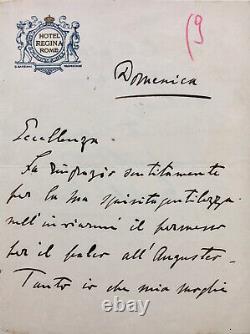 HOTEL
REGINA
ROME
19
Domenica
Eccellenza
La ringrazio sentitamente
per la sua squisita gentilezza
nell'inviarmi il permesso
per il palco all'Augusteo.
Tanto io che mia moglie